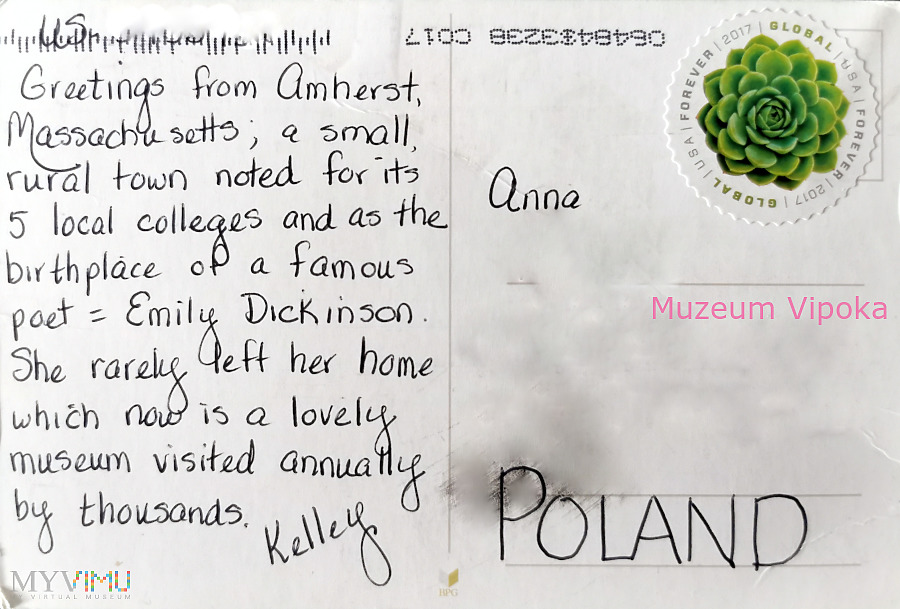 US
Greetings from Amherst,
Massachusetts; a small,
rural town noted for its
5 local colleges and as the
birthplace of a famous
poet = Emily Dickinson.
She rarely left her home
which now is a lovely
museum visited annually
by thousands.
Kelley
06484$3238 C017
FOREVER | 2017 | GLOBAL | USA | FOREVER | 2017 | GLOBAL | USA |
Anna
Muzeum Vipoka
POLAND
BPG
MYVIMU
VIRTUAL MUSEUM